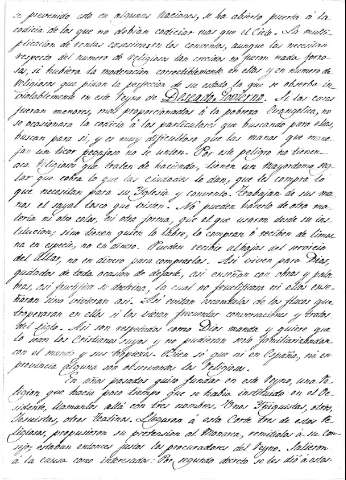 se prevenido esto en algunas naciones, se ha abierto puerta á la
codicia de los que no debian codiciar mas que el Cielo. La multi-
plicacion de rentas consumen en los conventos, aunque las necesitan
respecto del numero de religiosos tan crecido no fueran nada forzo-
sas, si hubiera la moderacion correspondiente en ellas y en numero de
religiosos que pisan la perfeccion de su estado la que se observa in-
violablemente en este Reyno de
fueran menores, mas proporcionadas á la pobreza Evangelica, no
se ocasionara la codicia á los particulares que buscando para ellas
buscan para sí, y es muy dificultoso que las manos que mane-
jan un licor pegajoso no se unten. Por este peligro no tienen
aca Religioso que trate de hacienda, tienen un Mayordomo seg-
lar que cobra lo que las ciudades le dan, que les compra lo
que necesitan para su Yglesia y convento. Trabajan de sus ma-
nos el sayal tosco que visten. No pueden hacerlo de otra ma-
teria ni otro color, ni otra forma, que el que usaron desde su ins-
titucion; sino tienen quien lo labre, lo compran ó reciben de limos-
na en especie, no en dinero. Pueden recibir alhajas del servicio
del Altar, no en dinero para comprarlas. Asi viven para Dios,
quitados de toda ocasion de afecto, asi enseñan con obras y pala-
bras, asi fructifica su doctrina, la cual no fructificara ni ellos ense-
ñaran uno vivieran asi. Asi evitan escandalos de los flacos que
tropezaran en ellos si los vieran frecuentar conversaciones y tratos
del siglo. Asi son respetados como Dios manda y quiere que
lo sean los Cristianos suyos y no pudieran ser familiarizandose
con el mundo y sus tropiezos. Bien sé que ni en España, ni en
provincia alguna son observantes los Religiosos.
En años pasados quiso fundar en este Reyno, una Re-
ligion que hacia poco tiempo que se habia instituido en el Oc-
cidente, llamados alla con tres nombres. Unos Yñiguistas, otros
Jesuistas, otros Teatinos. Llegaron á esta Corte tres de estos Re-
ligiosos, propusieron su pretension al Monarca, remitiolos á su con-
sejo; estaban entonces juntos los procuradores del Reyno. Salieron
á la causa como interesados. Por segundo decreto se les dió á estos